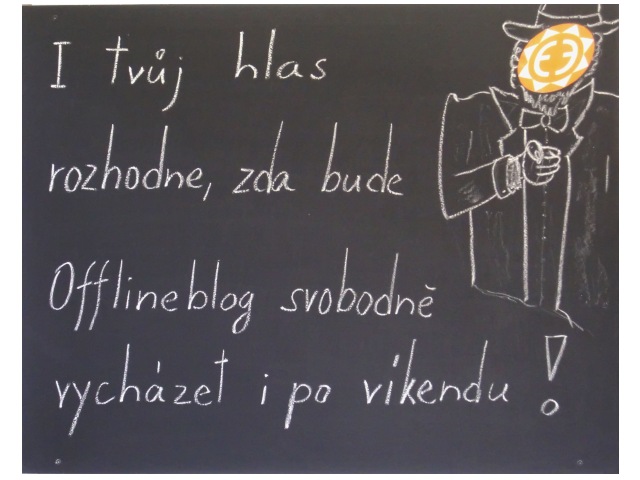 I tvůj hlas
rozhodne, zda bude
Offlineblog svobodně
vycházet i po víkendu!